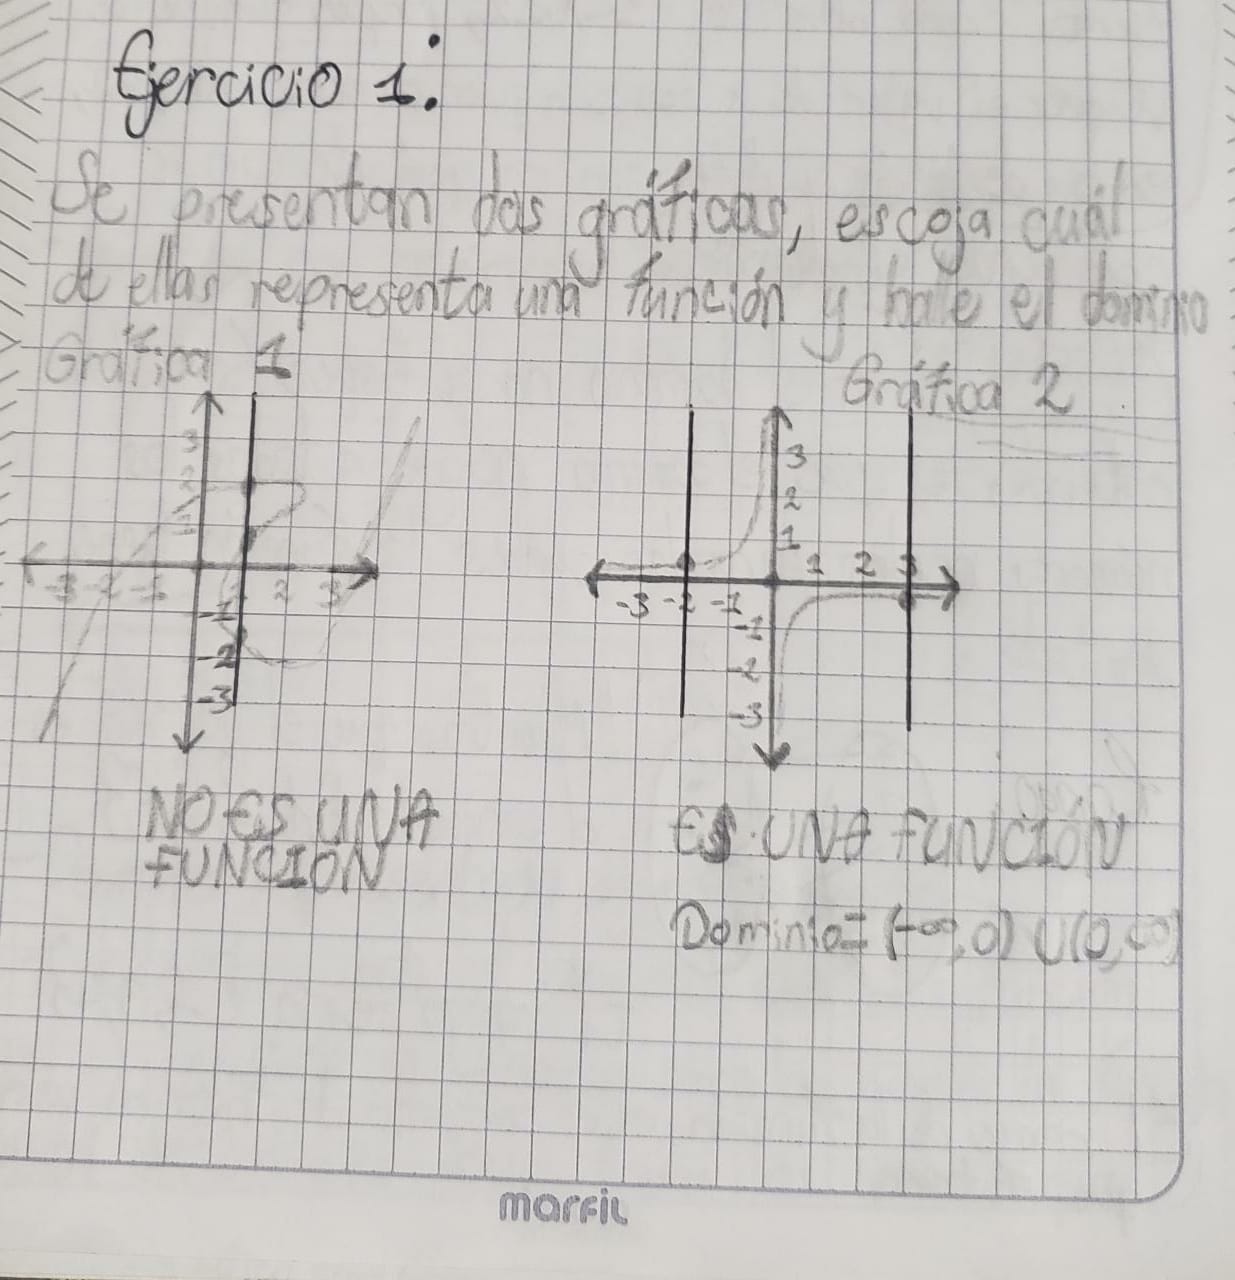 Ejercicio 1:
Se presentan dos gráficas, escoja cuál
de ellas representa una función y halle el dominio
Gráfica 1
Gráfica 2
3
2
1
-3 -2 -1 1 2 3
-1
-2
-3
3
2
1
1 2 3
-3 -2 -1
-1
-2
-3
NO ES UNA
FUNCIÓN
ES UNA FUNCIÓN
Dominio= (-∞,0) U(0,∞)
marfil